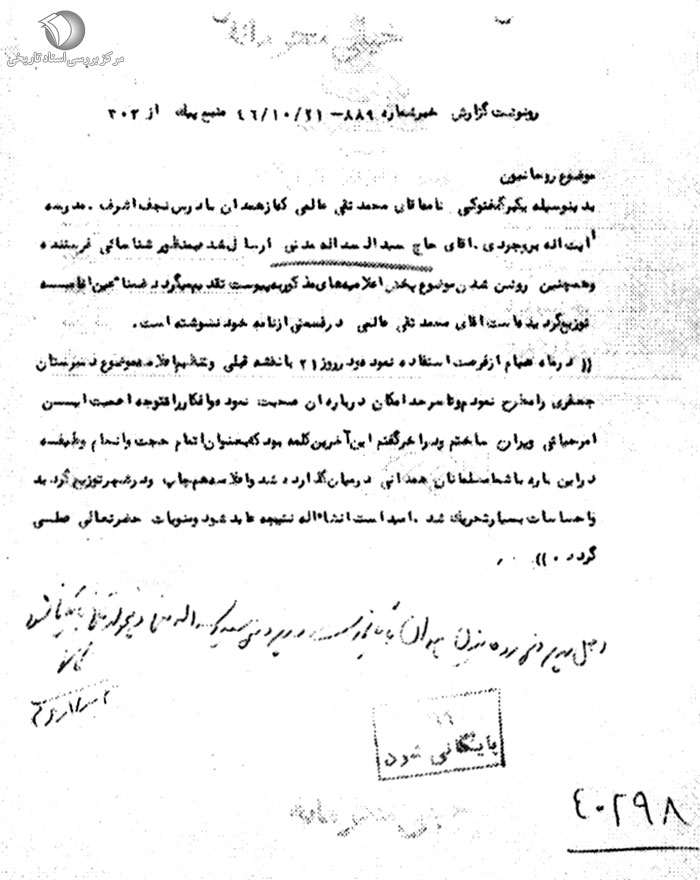 مرکز بررسی اسناد تاریخی
رونوشت گزارش خبر شماره ۸۸۹ – ۴۶/۱۰/۲۱ منبع از ۳۰۲
موضوع روحانیون
بدینوسیله یکبرگ فتوکپی نامه آقای محمد تقی عالمی که از همدان بآدرس نجف اشرف . مدرسه
آیت اله بروجردی . آقای حاج سید اسداله مدنی ارسال شد بمنظور شناسائی فرستنده
و همچنین روشن شدن موضوع پخش اعلامیه‌های مذکور به پیوست تقدیم میگردد ضمنا عین اعلامیه
توزیع گردیده است آقای محمد تقی عالمی در قسمتی از نامه خود نوشته است .
(( در ماه صیام از فرصت استفاده نموده در روز ۲۱ با نقشه قبلی و تنظیم اعلامیه موضوع دبیرستان
جعفری را مطرح نمودم و تا سرحد امکان درباره آن صحبت نموده و افکار را متوجه اهمیت ایسن
امر حیاتی ویران ساختم و در آخر گفتم این آخرین کلمه بود که بعنوان اتمام حجت و انجام وظیفه
در این باره با شما مسلمانان همدانی در میان گذارده شد و اعلامیه هم چاپ و در شهر توزیع گردید
و احساسات بسیار تحریک شد . امید است انشاءاله نتیجه عاید شود و منویات حضرتعالی عملی
گردد . ))
بایگانی شود
۴۰۲۹۸